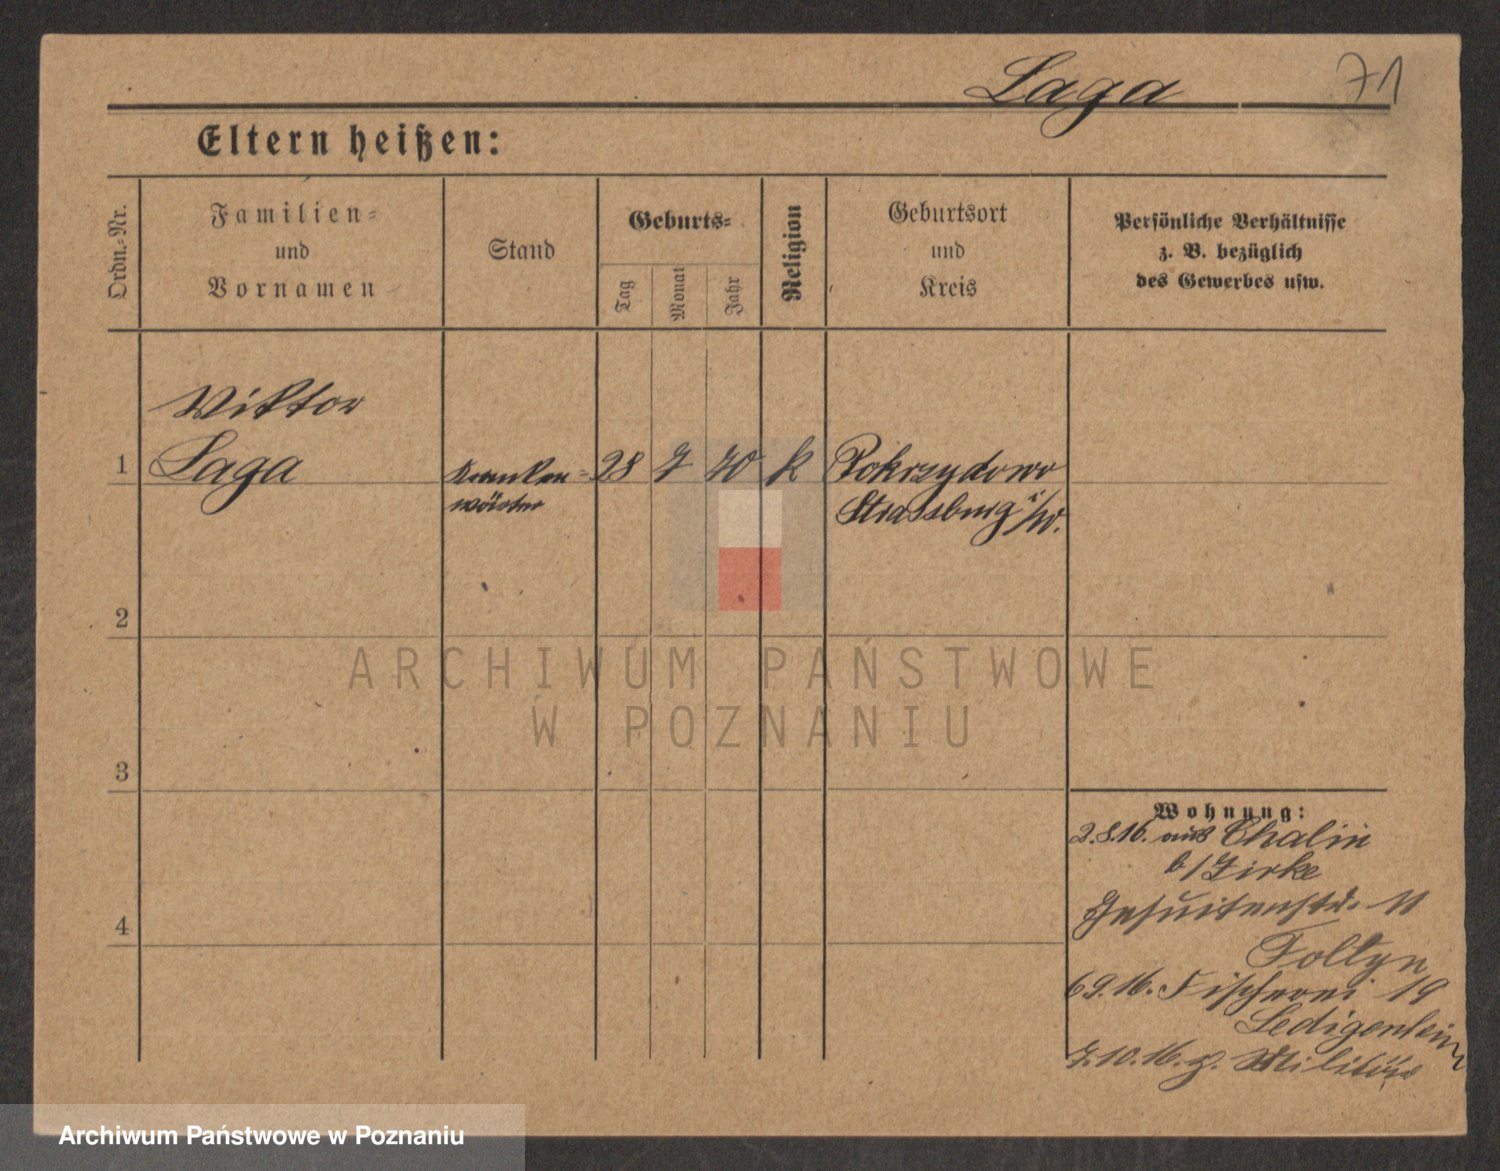 Laga
71
Eltern heißen:
Ordn.-Nr.
Familien-
und
Vornamen
Stand
Geburts-
Tag
Monat
Jahr
Religion
Geburtsort
und
Kreis
Persönliche Verhältnisse
z. B. bezüglich
des Gewerbes usw.
Viktor
1 Laga Kranken- 28 7 70 k Pokrzydowo
wärter Strassburg i/W.
2
ARCHIWUM PAŃSTWOWE
W POZNANIU
3
Wohnung:
2.8.16. aus Chalin
b/Zirke
Jesuitenstr. 11
6.9.16. Fischerei 19
Ledigenheim
7.10.16. z. Militär
4
Archiwum Państwowe w Poznaniu